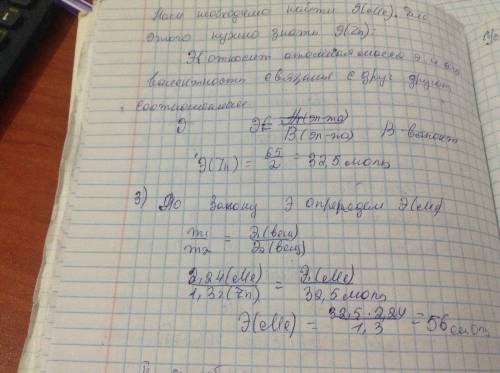 Нам необходимо найти Э(Me). Для
этого нужно знать Э(Zn).
Э, относит атомная масса Э и его
валентность связаны с друг другом
соотношением
Э Э = Ar(эл-та)/В(эл-та) В-валент
Э(Zn) = 65/2 = 32,5 моль
3) По закону Э определем Э(Me)
m1/m2 = Э1(вещ)/Э2(вещ)
2,24(Me)/1,3г(Zn) = Э(Me)/32,5 моль
Э(Me) = 32,5·2,24/1,3 = 56 моль